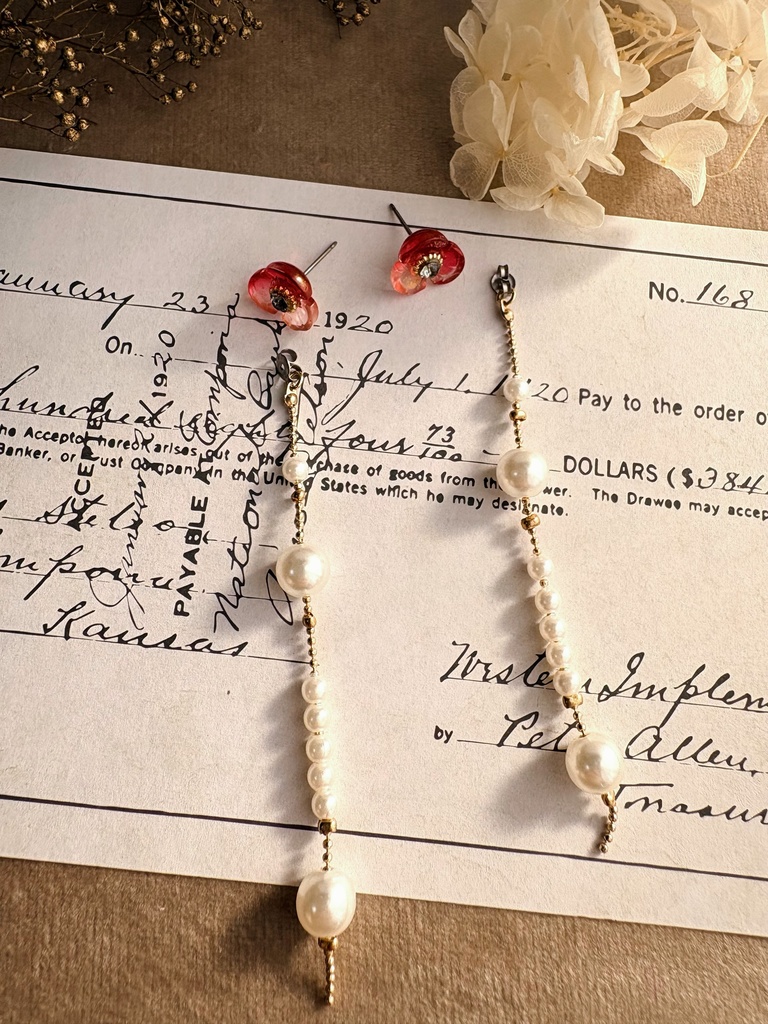 No. 168
anuary 23 1920
On July 1, 1920 Pay to the order o
hundred eighty four 73/100 DOLLARS ($384
he Acceptor hereof arises out of the purchase of goods from the Drawer. The Drawee may accep
Banker, or Trust Company in the United States which he may designate.
Kansas
Western Implem
by Peter Allen,
Treasur
ACCEPTED
January 1920
PAYABLE AT
Watson